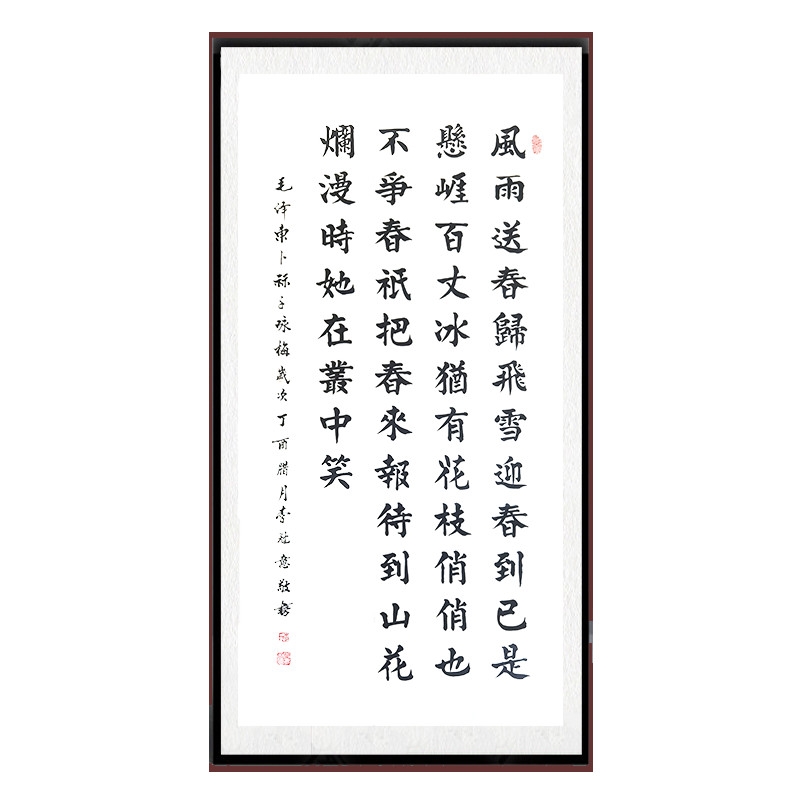 風雨送春歸飛雪迎春到已是
懸崖百丈冰猶有花枝俏俏也
不爭春祇把春來報待到山花
爛漫時她在叢中笑
毛泽東卜祘子咏梅歲次丁酉腊月李社意敬書